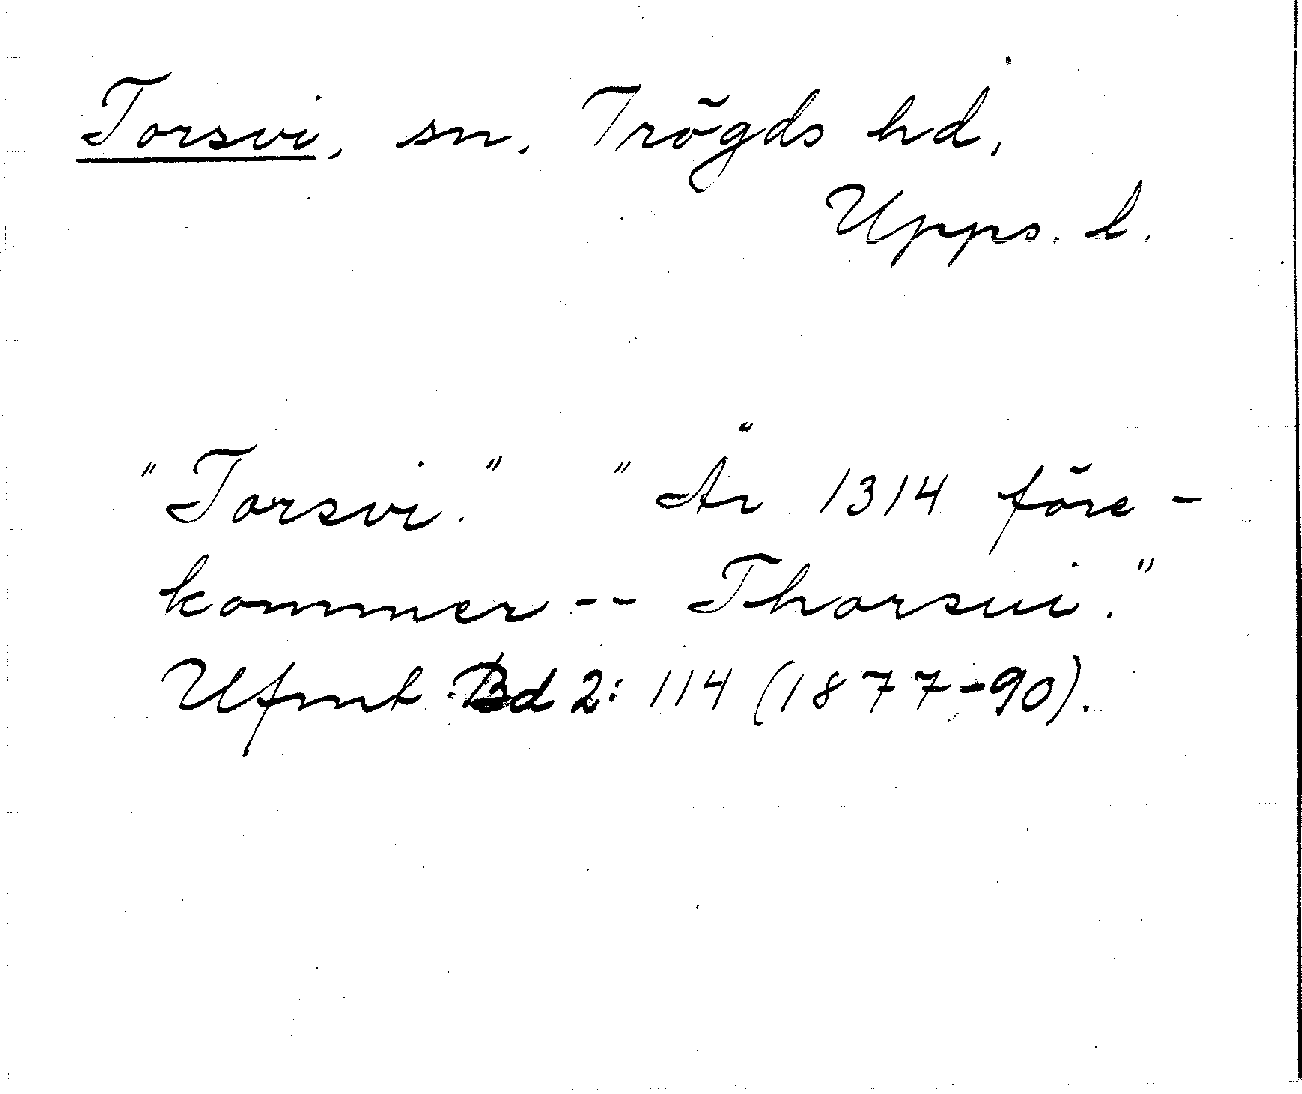 Torsvi, sn. Trögds hd,
Upps. l.
"Torsvi." "År 1314 före-
kommer -- Thorsui."
Ufmt Bd 2: 114 (1877-90).